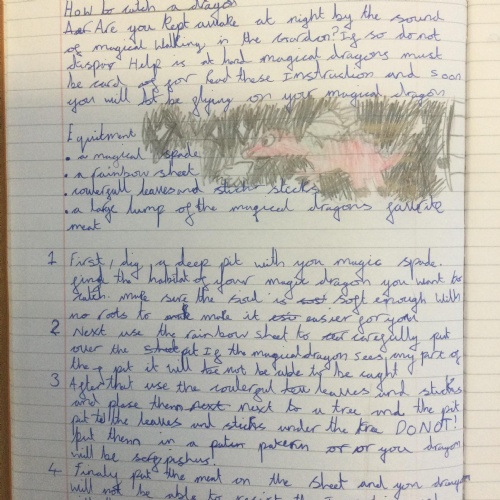 How to catch a dragon
Are you kept awake at night by the sound
of magical walking in the Gardon? If so do not
dispor Help is at hand magical dragons must
be card for Read these Instruction and soon
you will be flying on your magical dragon
Equitment
• a magical spade
• a rainbow sheet
• couerfull leaves and sticks
• a large lump of the magical dragons favirite
meat
1 First, dig a deep pit with you magic spade.
find the habitat of your magic dragon you want to
catch. make sure the soil is soft enough with
no rots to make it easier for you
2 Next use the rainbow sheet to carefully put
over the pit If the magical dragon sees any part of
the pit it will not be able to be caught
3 After that use the couerful leaves and sticks
and plase them next to a tree and the pit
put the leaves and sticks under the tree DO NOT!
put them in a patern or you dragon
will be
4 Finaly put the meat on the sheet and your dragon
will not be able to resist the